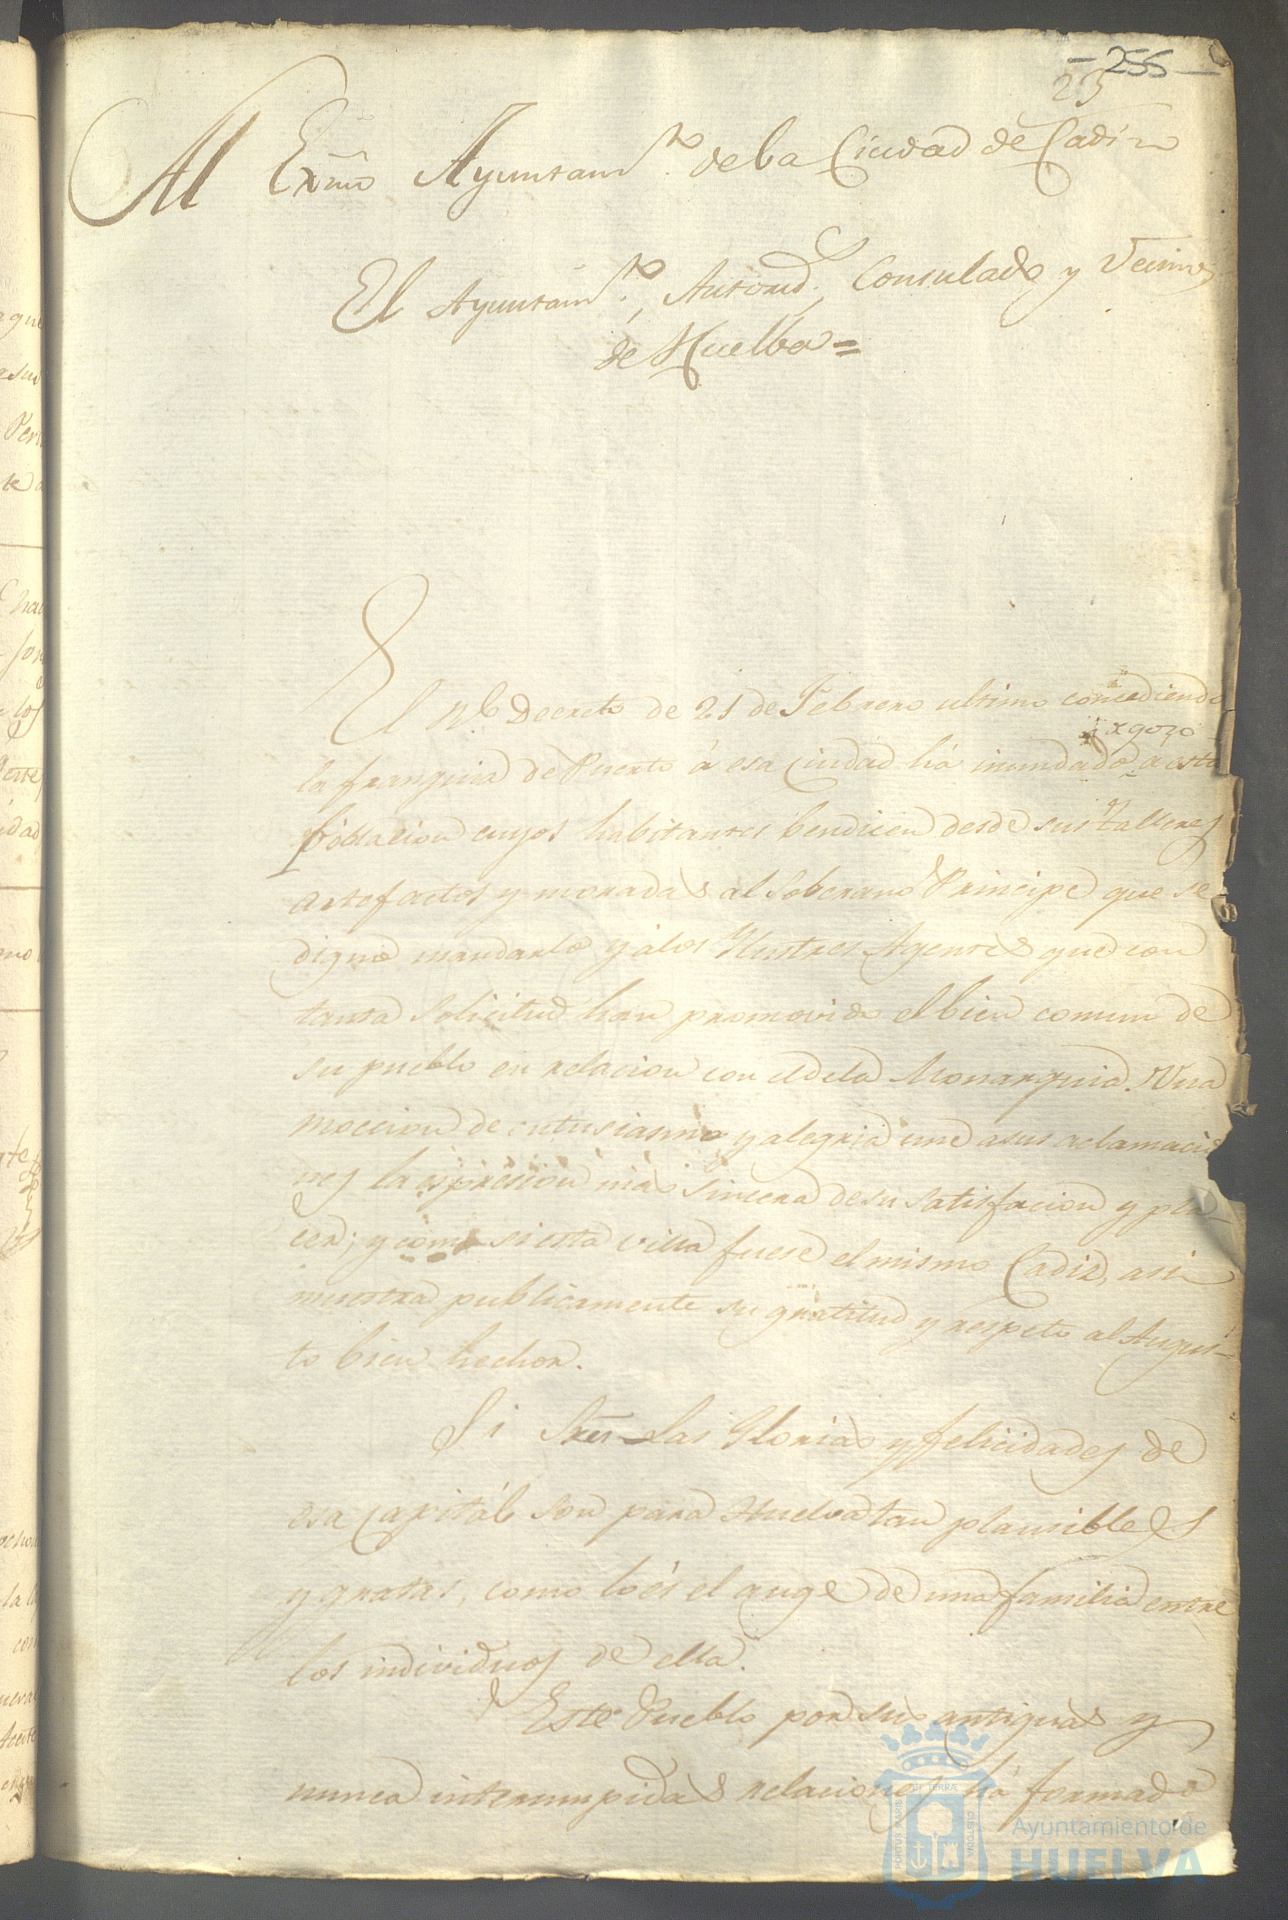 - 255 -
23
Al Exmo Ayuntamto. de la Ciudad de Cadiz
El Ayuntamto., Autorids., Consulado y Vecinos
de Huelba =
El Rl. Decreto de 21 de Febrero ultimo concediendo
de gozo
la franquicia de Puerto á esa Ciudad há inundado a esta
Poblacion cuyos habitantes bendicen desde sus Talleres
artefactos y moradas al Soberano Principe que se
dignó mandarlo y álos Ilustres Agentes que con
tanta solicitud han promovido el bien comun de
su pueblo en relacion con el dela Monarquia. Una
mocion de entusiasmo y alegria une a sus aclamacio
nes la espresion más sincera de su satisfacion y pla-
cer; y como si esta villa fuese el mismo Cadiz, asi
muestra publicamente su gratitud y respeto al Augus-
to bien hechor.
Si Sres. las Glorias y felicidades de
esa Capitál son para Huelva tan plausibles
y gratas, como lo és el auge de una familia entre
los individuos de ella.
Este Pueblo por sus antiguas y
nunca interrumpidas relaciones há formado
PORTUS MARIS ET TERRAE CUSTODIA
Ayuntamiento de
HUELVA